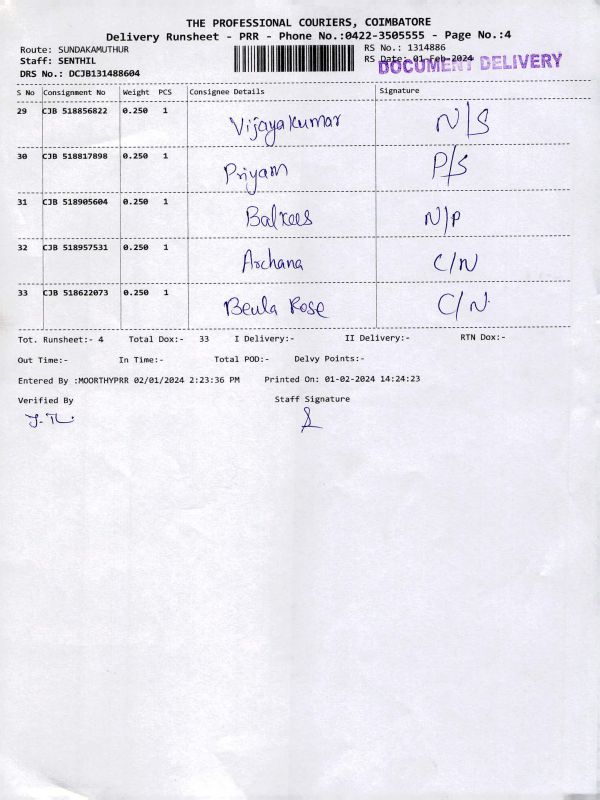 THE PROFESSIONAL COURIERS, COIMBATORE
Delivery Runsheet - PRR - Phone No.:0422-3505555 - Page No.:4
Route: SUNDAKAMUTHUR
RS No.: 1314886
Staff: SENTHIL
RS Date: 01-Feb-2024
DOCUMENT DELIVERY
DRS No.: DCJB131488604
S No Consignment No Weight PCS Consignee Details Signature
29 CJB 518856822 0.250 1 Vijayakumar N/S
30 CJB 518817898 0.250 1 Priyam P/S
31 CJB 518905604 0.250 1 Balkees N/P
32 CJB 518957531 0.250 1 Archana C/N
33 CJB 518622073 0.250 1 Beula Rose C/N
Tot. Runsheet:- 4 Total Dox:- 33 I Delivery:- II Delivery:- RTN Dox:-
Out Time:- In Time:- Total POD:- Delvy Points:-
Entered By :MOORTHYPRR 02/01/2024 2:23:36 PM Printed On: 01-02-2024 14:24:23
Verified By Staff Signature